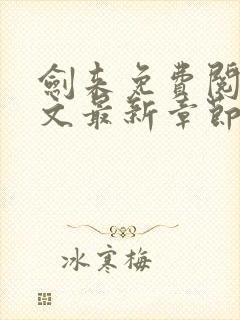 劍来免費閱
文最新章節
冰寒梅